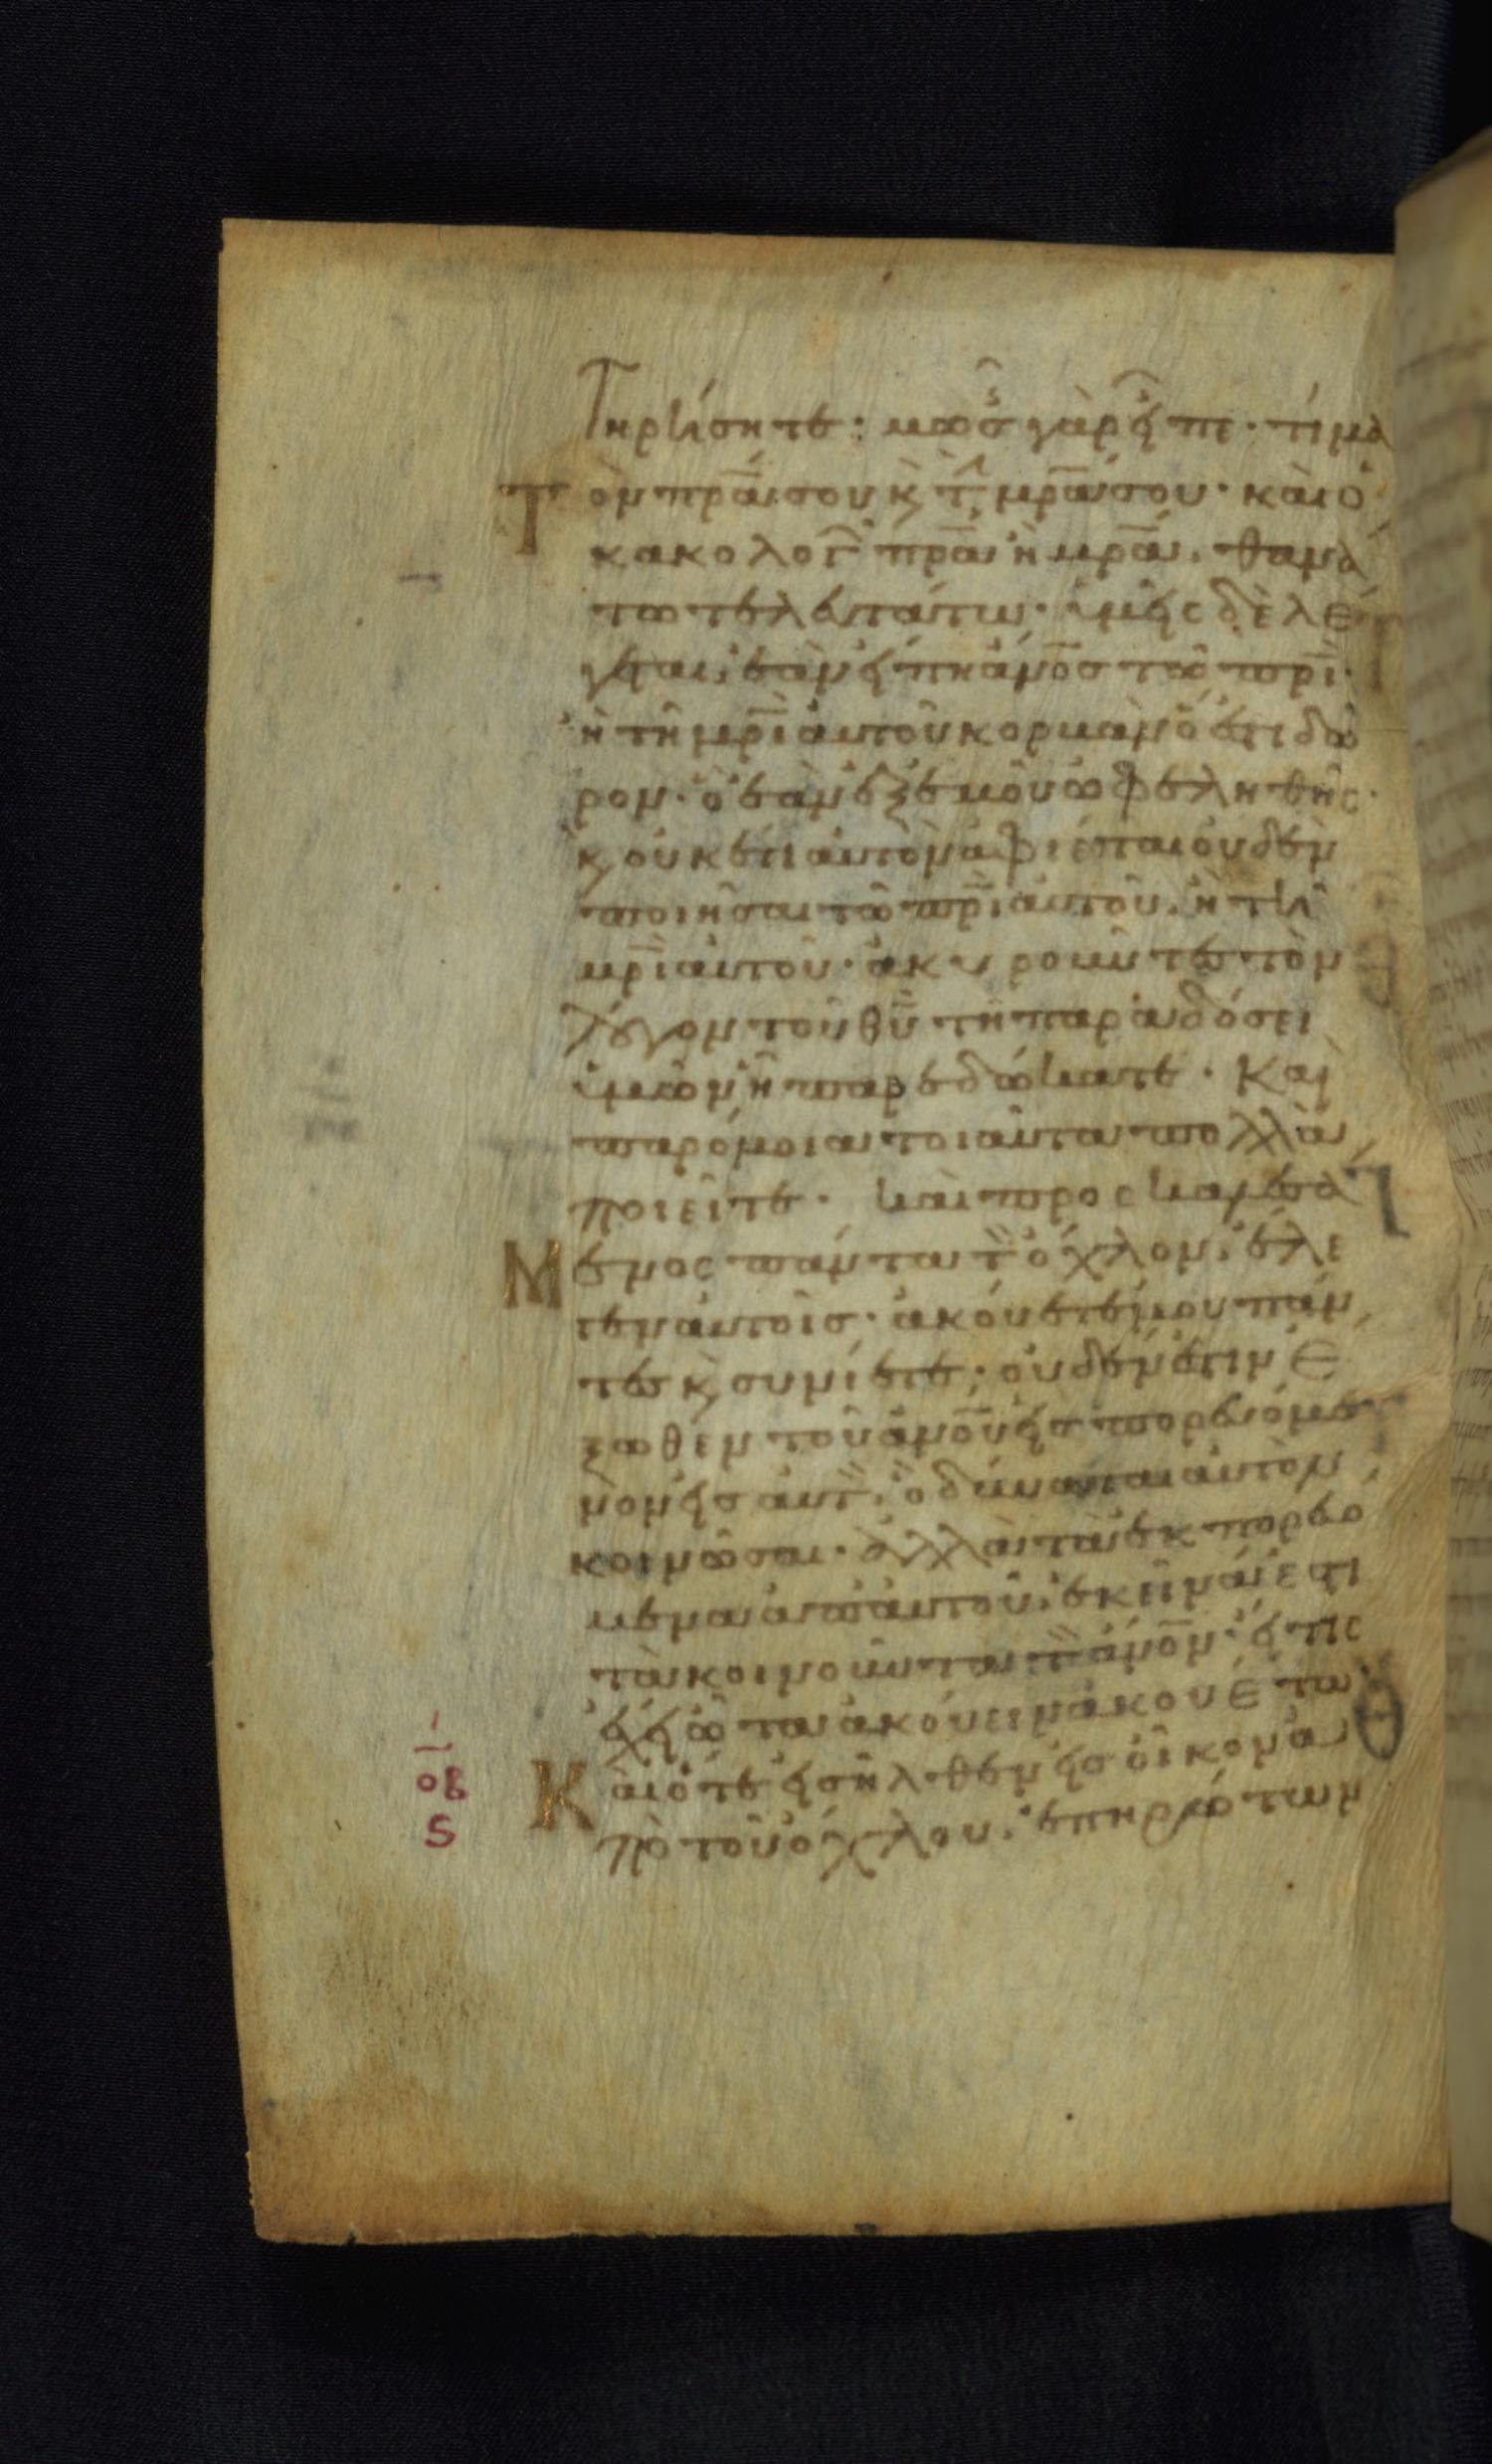 τηρήσητε· μωσ γὰρ εἶπε· τίμα
τὸν πρα σου κ τ μρα σου· καὶ ὁ
κακολογ πρα ἢ μρα· θανά
τω τελευτάτω· ὑμεῖς δὲ λέ
γεται ἐὰν εἴπη ἀνος τῶ πρι·
ἢ τῆ μρι αὐτοῦ κορμανὸ ὅτι δῶ
ρον· ὃ ἐὰν ἐξ ἐμοῦ ὠφεληθῆς·
κ οὐκέτι αὐτὸν ἀφιέται οὐδὲν
ποιῆσαι τῶ πρι αὐτοῦ· ἢ τῆ
μρι αὐτοῦ· ἀκυροῦντες τὸν
λόγον τοῦ θυ τῆ παραδόσει
ὑμῶν ἧ παρεδώκατε· Καὶ
παρόμοια τοιαῦτα πολλὰ
ποιεῖτε· καὶ προσκαλεσά
μενος πάντα τ ὄχλον· ἔλε
γεν αὐτοῖσ· ἀκούετέ μου πάν
τες κ συνίετε· οὐδέν ἐστιν ἔ
ξωθεν τοῦ ἀνου εἰσπορευόμε
νον εἰσ αὐτ· ὃ δύναται αὐτὸν
κοινῶσαι· ἀλλὰ τὰ ἐκπορευό
μενα ἀπ αὐτοῦ· ἐκεῖνά ἐστι
τὰ κοινοῦντα τ ἀνον· εἴ τις
ἔχει ὦτα ἀκούειν ἀκουέτω·
Καὶ ὅτε εἰσῆλθεν εἰσ οἶκον ἀ
πὸ τοῦ ὄχλου· ἐπηρώτων
οβ
ς